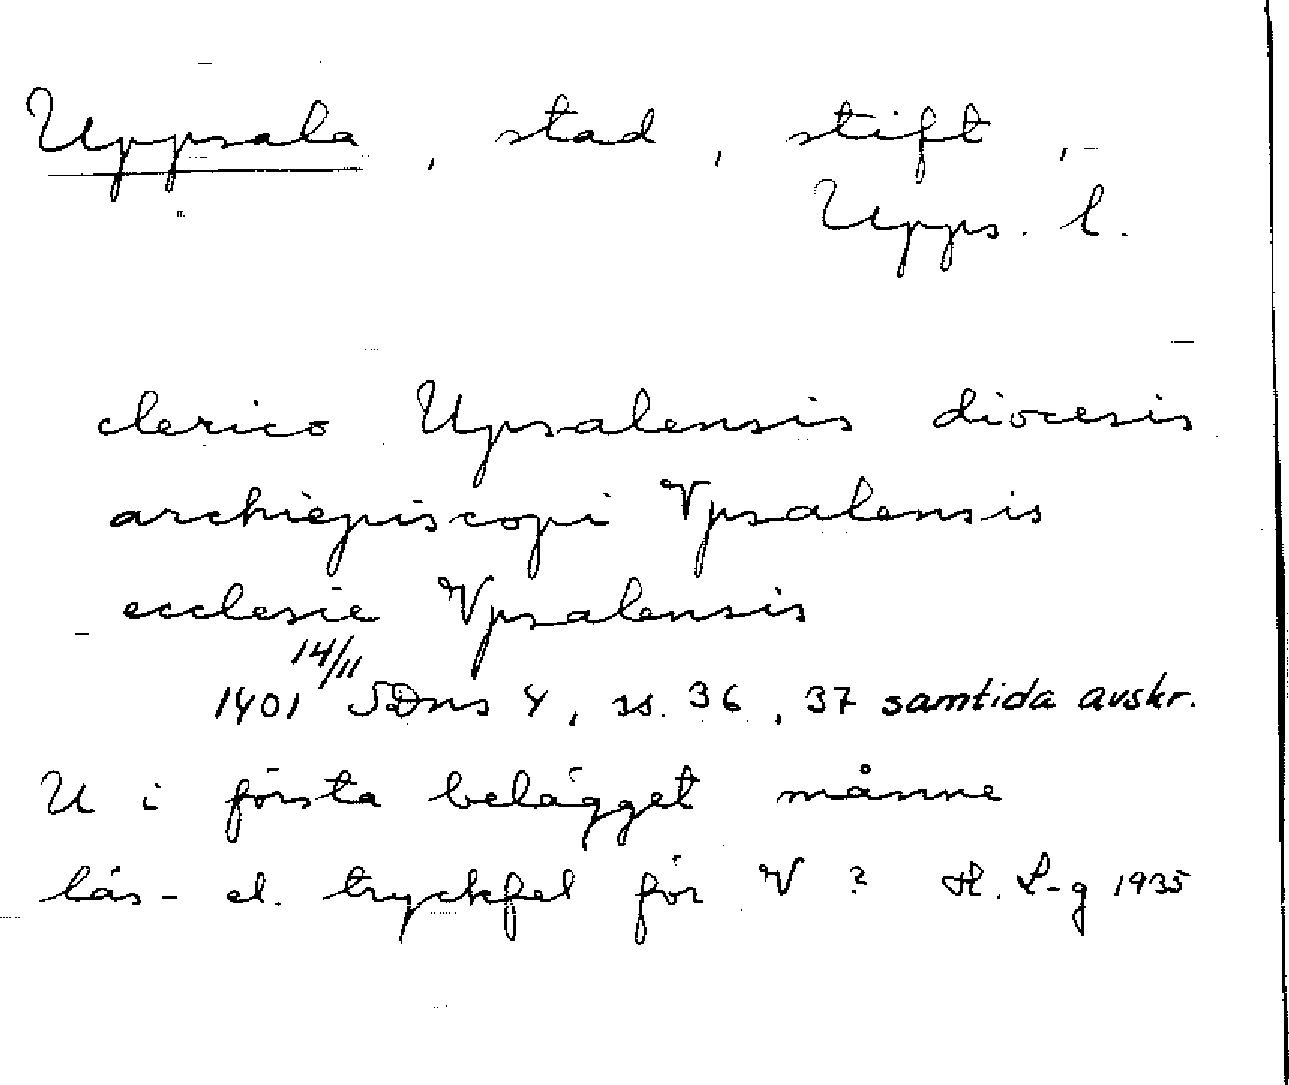 Uppsala, stad, stift,
Upps. l.
clerico Upsalensis diocesis
archiepiscopi Vpsalensis
ecclesie Vpsalensis
14/11
1401 SDns 4, ss. 36, 37 samtida avskr.
U i första belägget månne
läs- el. tryckfel för V ? H. L-g 1935